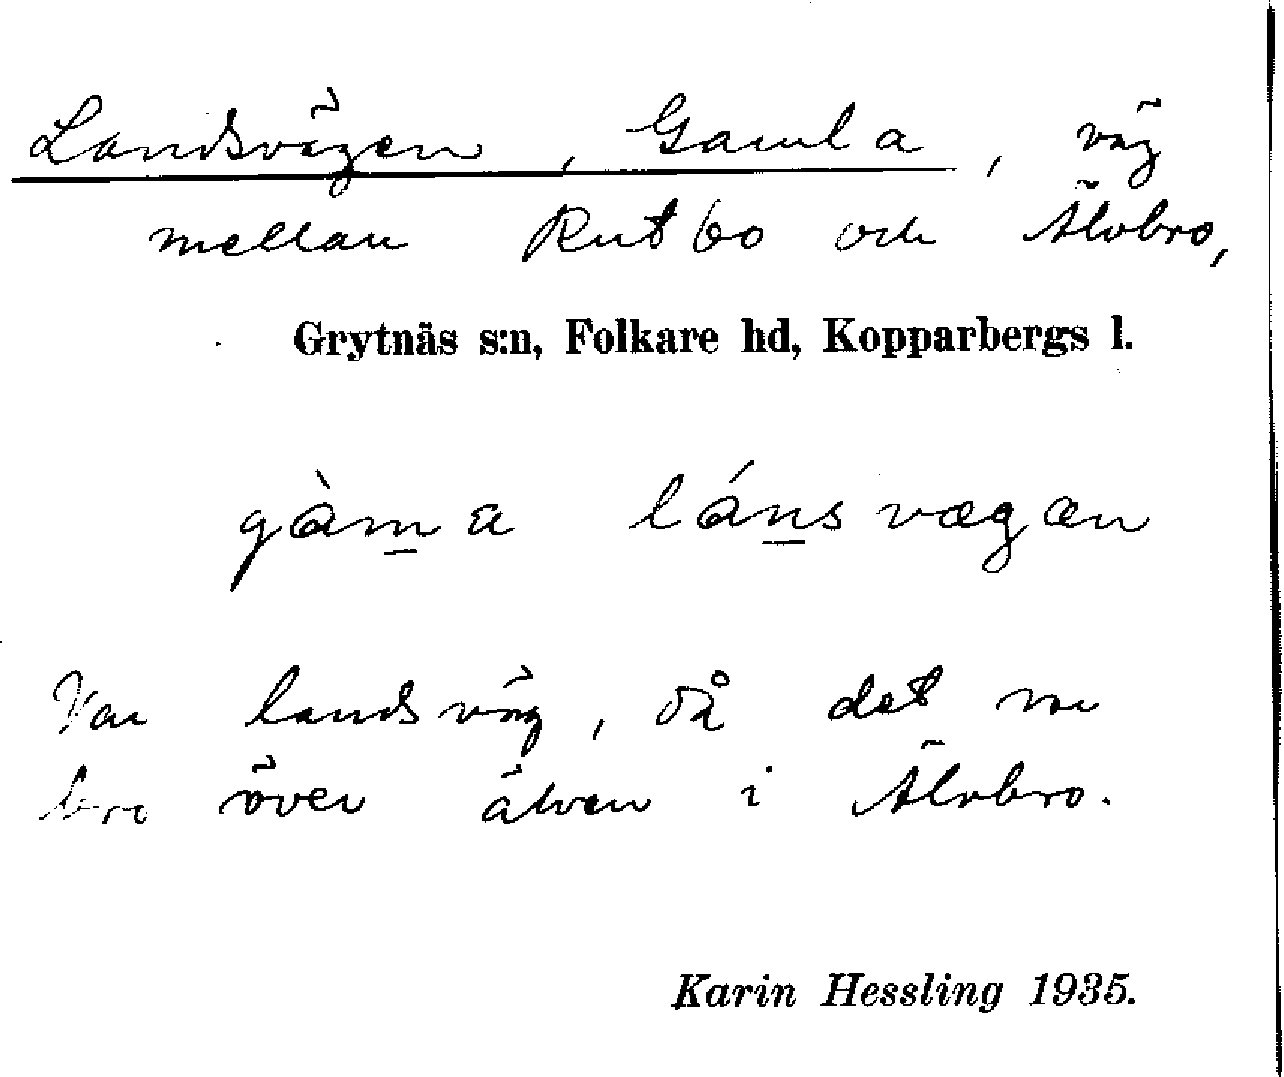 Landsvägen, Gamla, väg
mellan Rutbo och Älvbro,
Grytnäs s:n, Folkare hd, Kopparbergs l.
gàm̲a láns̲vægæn
Var landsväg, då det var
bro över älven i Älvbro.
Karin Hessling 1935.